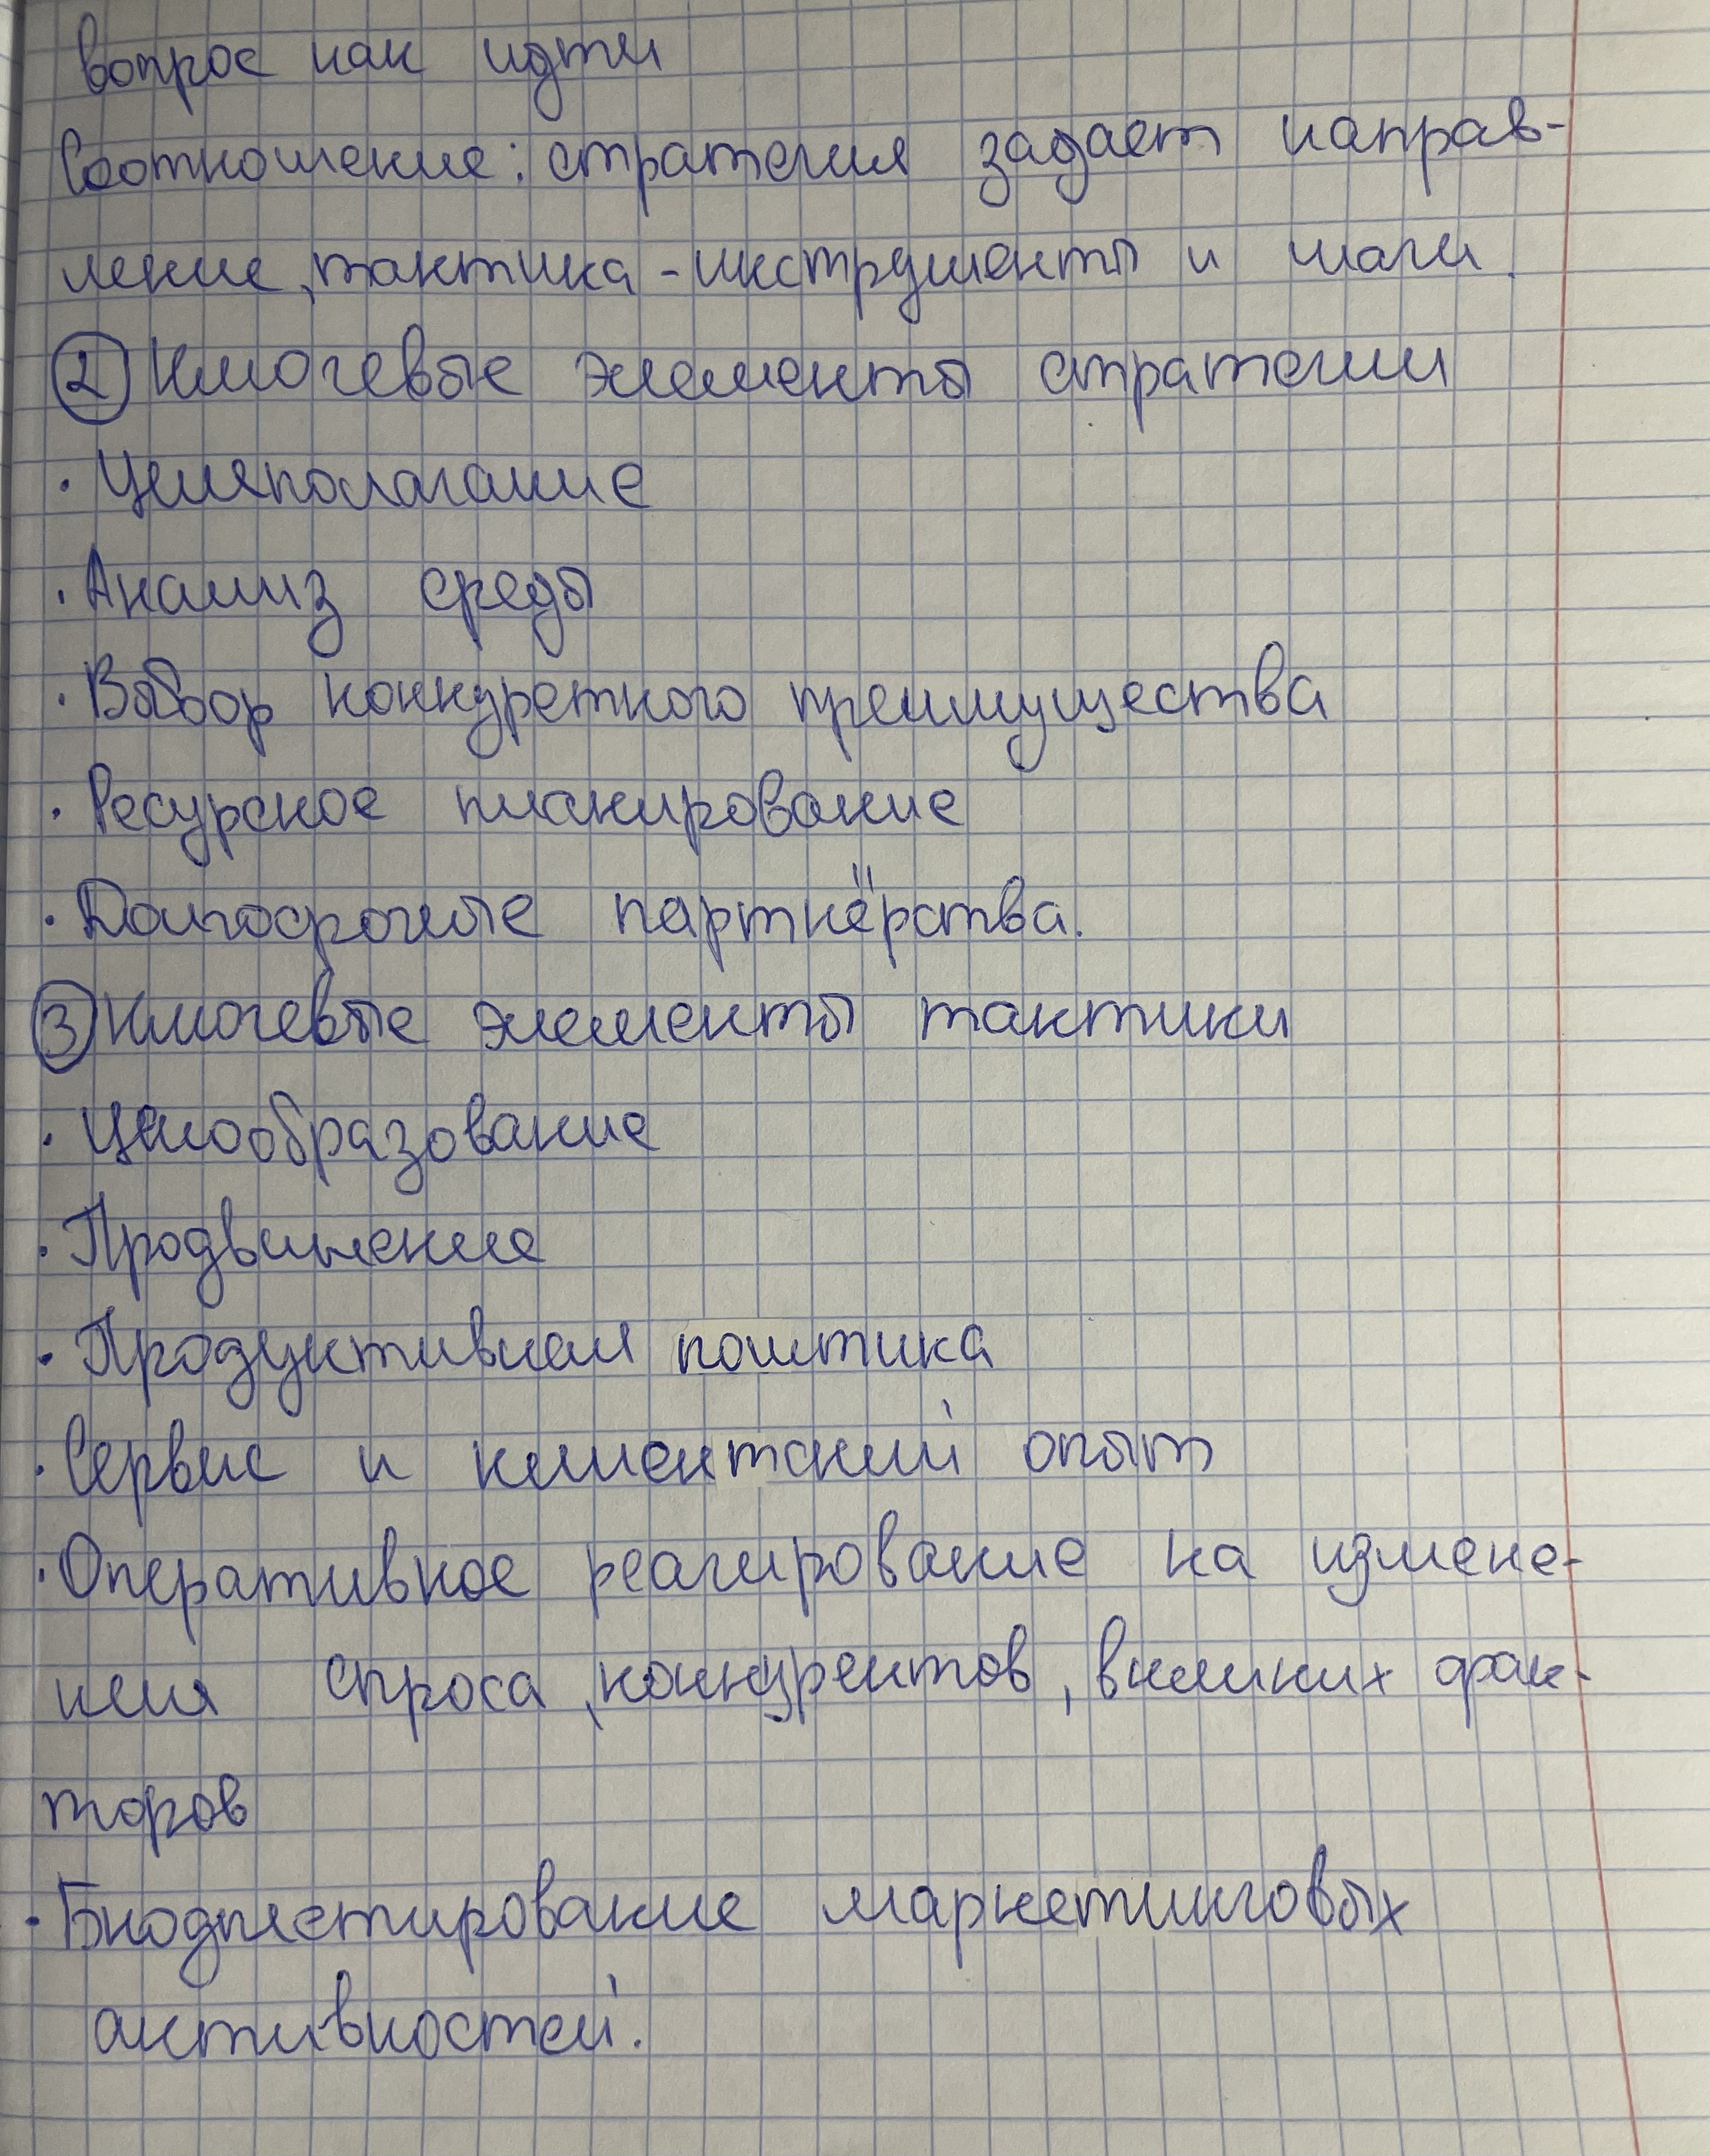 вопрос как идти
Соотношение: стратегия задает направ-
ление, тактика - инструменты и шаги.
② Ключевые элементы стратегии
· Целяполагание
· Анализ среды
· Выбор конкуретного преимущества
· Ресурсное планирование
· Долгосрочные партнёрства.
③ Ключевые элементы тактики
· Ценообразование
· Продвижение
· Продуктивная политика
· Сервис и клиентский опыт
· Оперативное реагирование на измене-
ния спроса, конкурентов, внешних фак-
торов
· Бюджетирование маркетинговых
активностей.